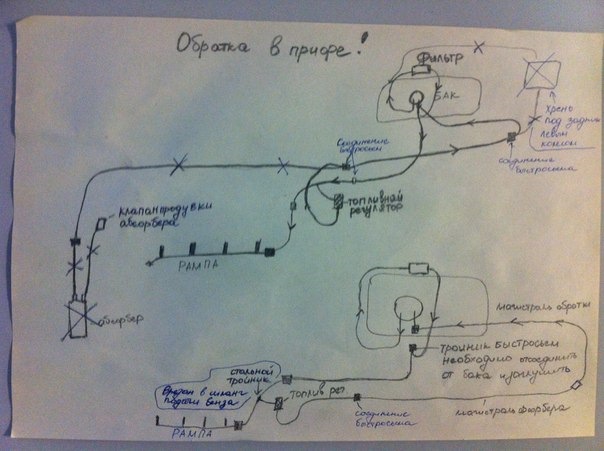 Обратка в приоре!
Фильтр
БАК
Хрень
под задним
левым
колесом
соединение
быстросъём
Соединение
быстросъём
топливной
регулятор
клапан продувки
абсорбера
РАМПА
абсорбер
магистраль обратки
тройник быстросъем
необходимо отсоединить
от бака и заглушить
стальной
тройник
Врезан в шланг
подачи бенза
топлив рег.
РАМПА
соединение
быстросъёма
магистраль абсорбера